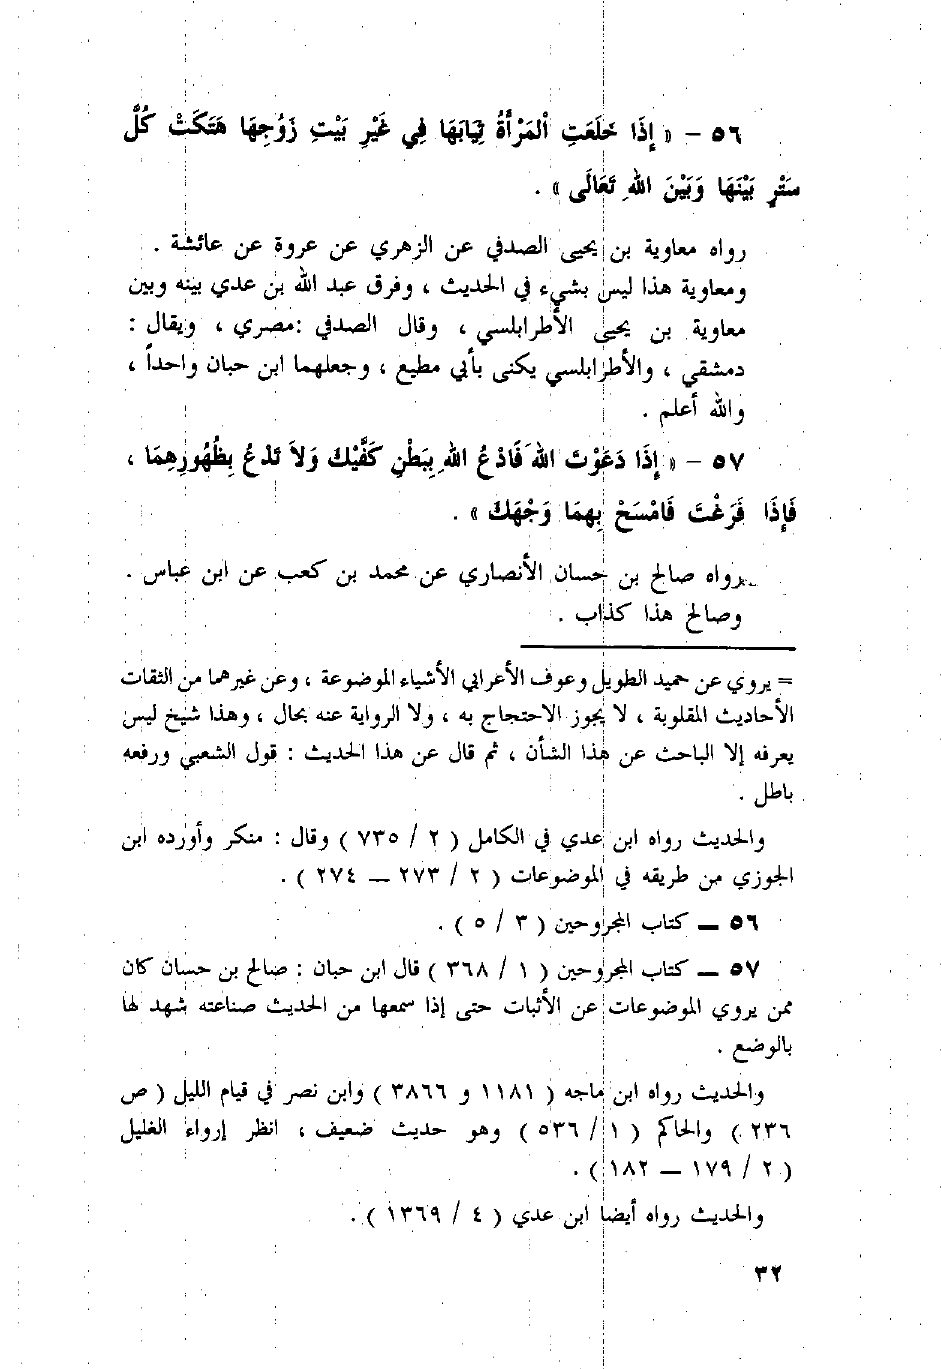 ٥٦ - « إِذَا خَلَعَتِ الْمَرْأَةُ ثِيَابَهَا فِي غَيْرِ بَيْتِ زَوْجِهَا هَتَكَتْ كُلَّ
سَتْرٍ بَيْنَهَا وَبَيْنَ اللهِ تَعَالَى » .
رواه معاوية بن يحيى الصدفي عن الزهري عن عروة عن عائشة .
ومعاوية هذا ليس بشيء في الحديث ، وفرق عبد الله بن عدي بينه وبين
معاوية بن يحيى الأطرابلسي ، وقال الصدفي :مصري ، ويقال :
دمشقي ، والأطرابلسي يكنى بأبي مطيع ، وجعلهما ابن حبان واحداً ،
والله أعلم .
٥٧ - « إِذَا دَعَوْتَ اللهَ فَادْعُ اللهَ بِبَطْنِ كَفَّيْكَ وَلاَ تَدْعُ بِظُهُورِهِمَا ،
فَإِذَا فَرَغْتَ فَامْسَحْ بِهِمَا وَجْهَكَ » .
رواه صالح بن حسان الأنصاري عن محمد بن كعب عن ابن عباس .
وصالح هذا كذاب .
= يروي عن حميد الطويل وعوف الأعرابي الأشياء الموضوعة ، وعن غيرهما من الثقات
الأحاديث المقلوبة ، لا يجوز الاحتجاج به ، ولا الرواية عنه بحال ، وهذا شيخ ليس
يعرفه إلا الباحث عن هذا الشأن ، ثم قال عن هذا الحديث : قول الشعبي ورفعه
باطل .
والحديث رواه ابن عدي في الكامل ( ٢ / ٧٣٥ ) وقال : منكر وأورده ابن
الجوزي من طريقه في الموضوعات ( ٢ / ٢٧٣ ــ ٢٧٤ ) .
٥٦ ــ كتاب المجروحين ( ٣ / ٥ ) .
٥٧ ــ كتاب المجروحين ( ١ / ٣٦٨ ) قال ابن حبان : صالح بن حسان كان
ممن يروي الموضوعات عن الأثبات حتى إذا سمعها من الحديث صناعته شهد لها
بالوضع .
والحديث رواه ابن ماجه ( ١١٨١ و ٣٨٦٦ ) وابن نصر في قيام الليل ( ص
٢٣٦ ) والحاكم ( ١ / ٥٣٦ ) وهو حديث ضعيف ، انظر إرواء الغليل
( ٢ / ١٧٩ ــ ١٨٢ ) .
والحديث رواه أيضا ابن عدي ( ٤ / ١٣٦٩ ) .
٣٢